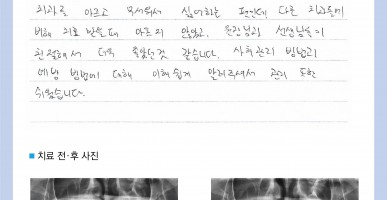 치과는 아프고 무서워서 싫어하는 편인데 다른 치과들에
비해 치료 받을 때 아프지 않았고, 원장님과 선생님들이
친절해서 더욱 좋았던것 같습니다. 사후관리 방법과
예방 방법에 대해 이해쉽게 알려주셔서 관리 또한
쉬웠습니다.
■ 치료 전·후 사진